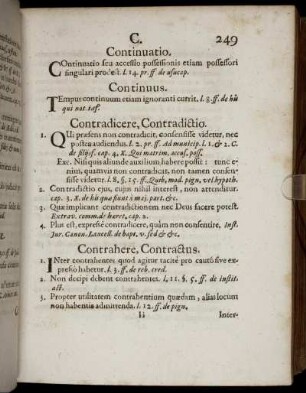 C. 249
Continuatio.
COntinuatio seu accessio possessionis etiam possessori
singulari prodest. l. 14. pr. ff. de usucap.
Continuus.
TEmpus continuum etiam ignoranti currit. l. 8. ff. de his
qui not. inf.
Contradicere, Contradictio.
1. QUi præsens non contradicit, consensisse videtur, nec
postea audiendus. l. 2. pr. ff. Ad municip. l. 1. & 2. C.
de filiis f. cap. 4. X. Qui matrim. accus. poss.
Exc. Nisi quis aliunde auxilium habere possit: tunc
enim, quamvis non contradicat, non tamen consen-
sisse videtur. l. 8. §. 15. ff. Quib. mod. pign. vel hypoth.
2. Contradictio ejus, cujus nihil interest, non attenditur.
cap. 3. X. de his quæ fiunt à maj. part. &c.
3. Quæ implicant contradictionem nec Deus facere potest.
Extrav. comm. de hæret. cap. 2.
4. Plus est, expressè contradicere, quàm non consentire. Inst.
Jur. Canon. Lancell. de bapt. v. sed & &c.
Contrahere, Contractus.
1. INter contrahentes quod agitur tacitè pro cautô sive ex-
presso habetur. l. 3. ff. de reb. cred.
2. Non decipi debent contrahentes. l. 11. §. 5. ff. de instit.
act.
3. Propter utilitatem contrahentium quædam, aliàs locum
non habentia admittenda. l. 12. ff. de pign.
Ii Inter-